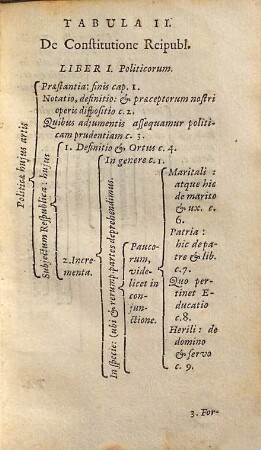 TABULA II.
De Constitutione Reipubl.
LIBER I. Politicorum.
Politicæ hujus artis
Præstantia: finis cap. 1.
Notatio, definitio: & præceptorum nostri
operis dispositio c. 2.
Quibus adjumentis assequamur politi-
cam prudentiam c. 3.
Subjectum Respublica: hujus
1. Definitio & Ortus c. 4.
2. Incre-
menta.
In genere c. 5.
In specie: (ubi & rerump. partes deprehendimus.
Pauco-
rum,
vide-
licet in
con-
jun-
ctione.
Maritali:
atque hic
de marito
& ux. c.
6.
Patria:
hic de pa-
tre & lib.
c. 7.
Quo per-
tinet E-
ducatio
c. 8.
Herili: de
domino
& servo
c. 9.
3. For-